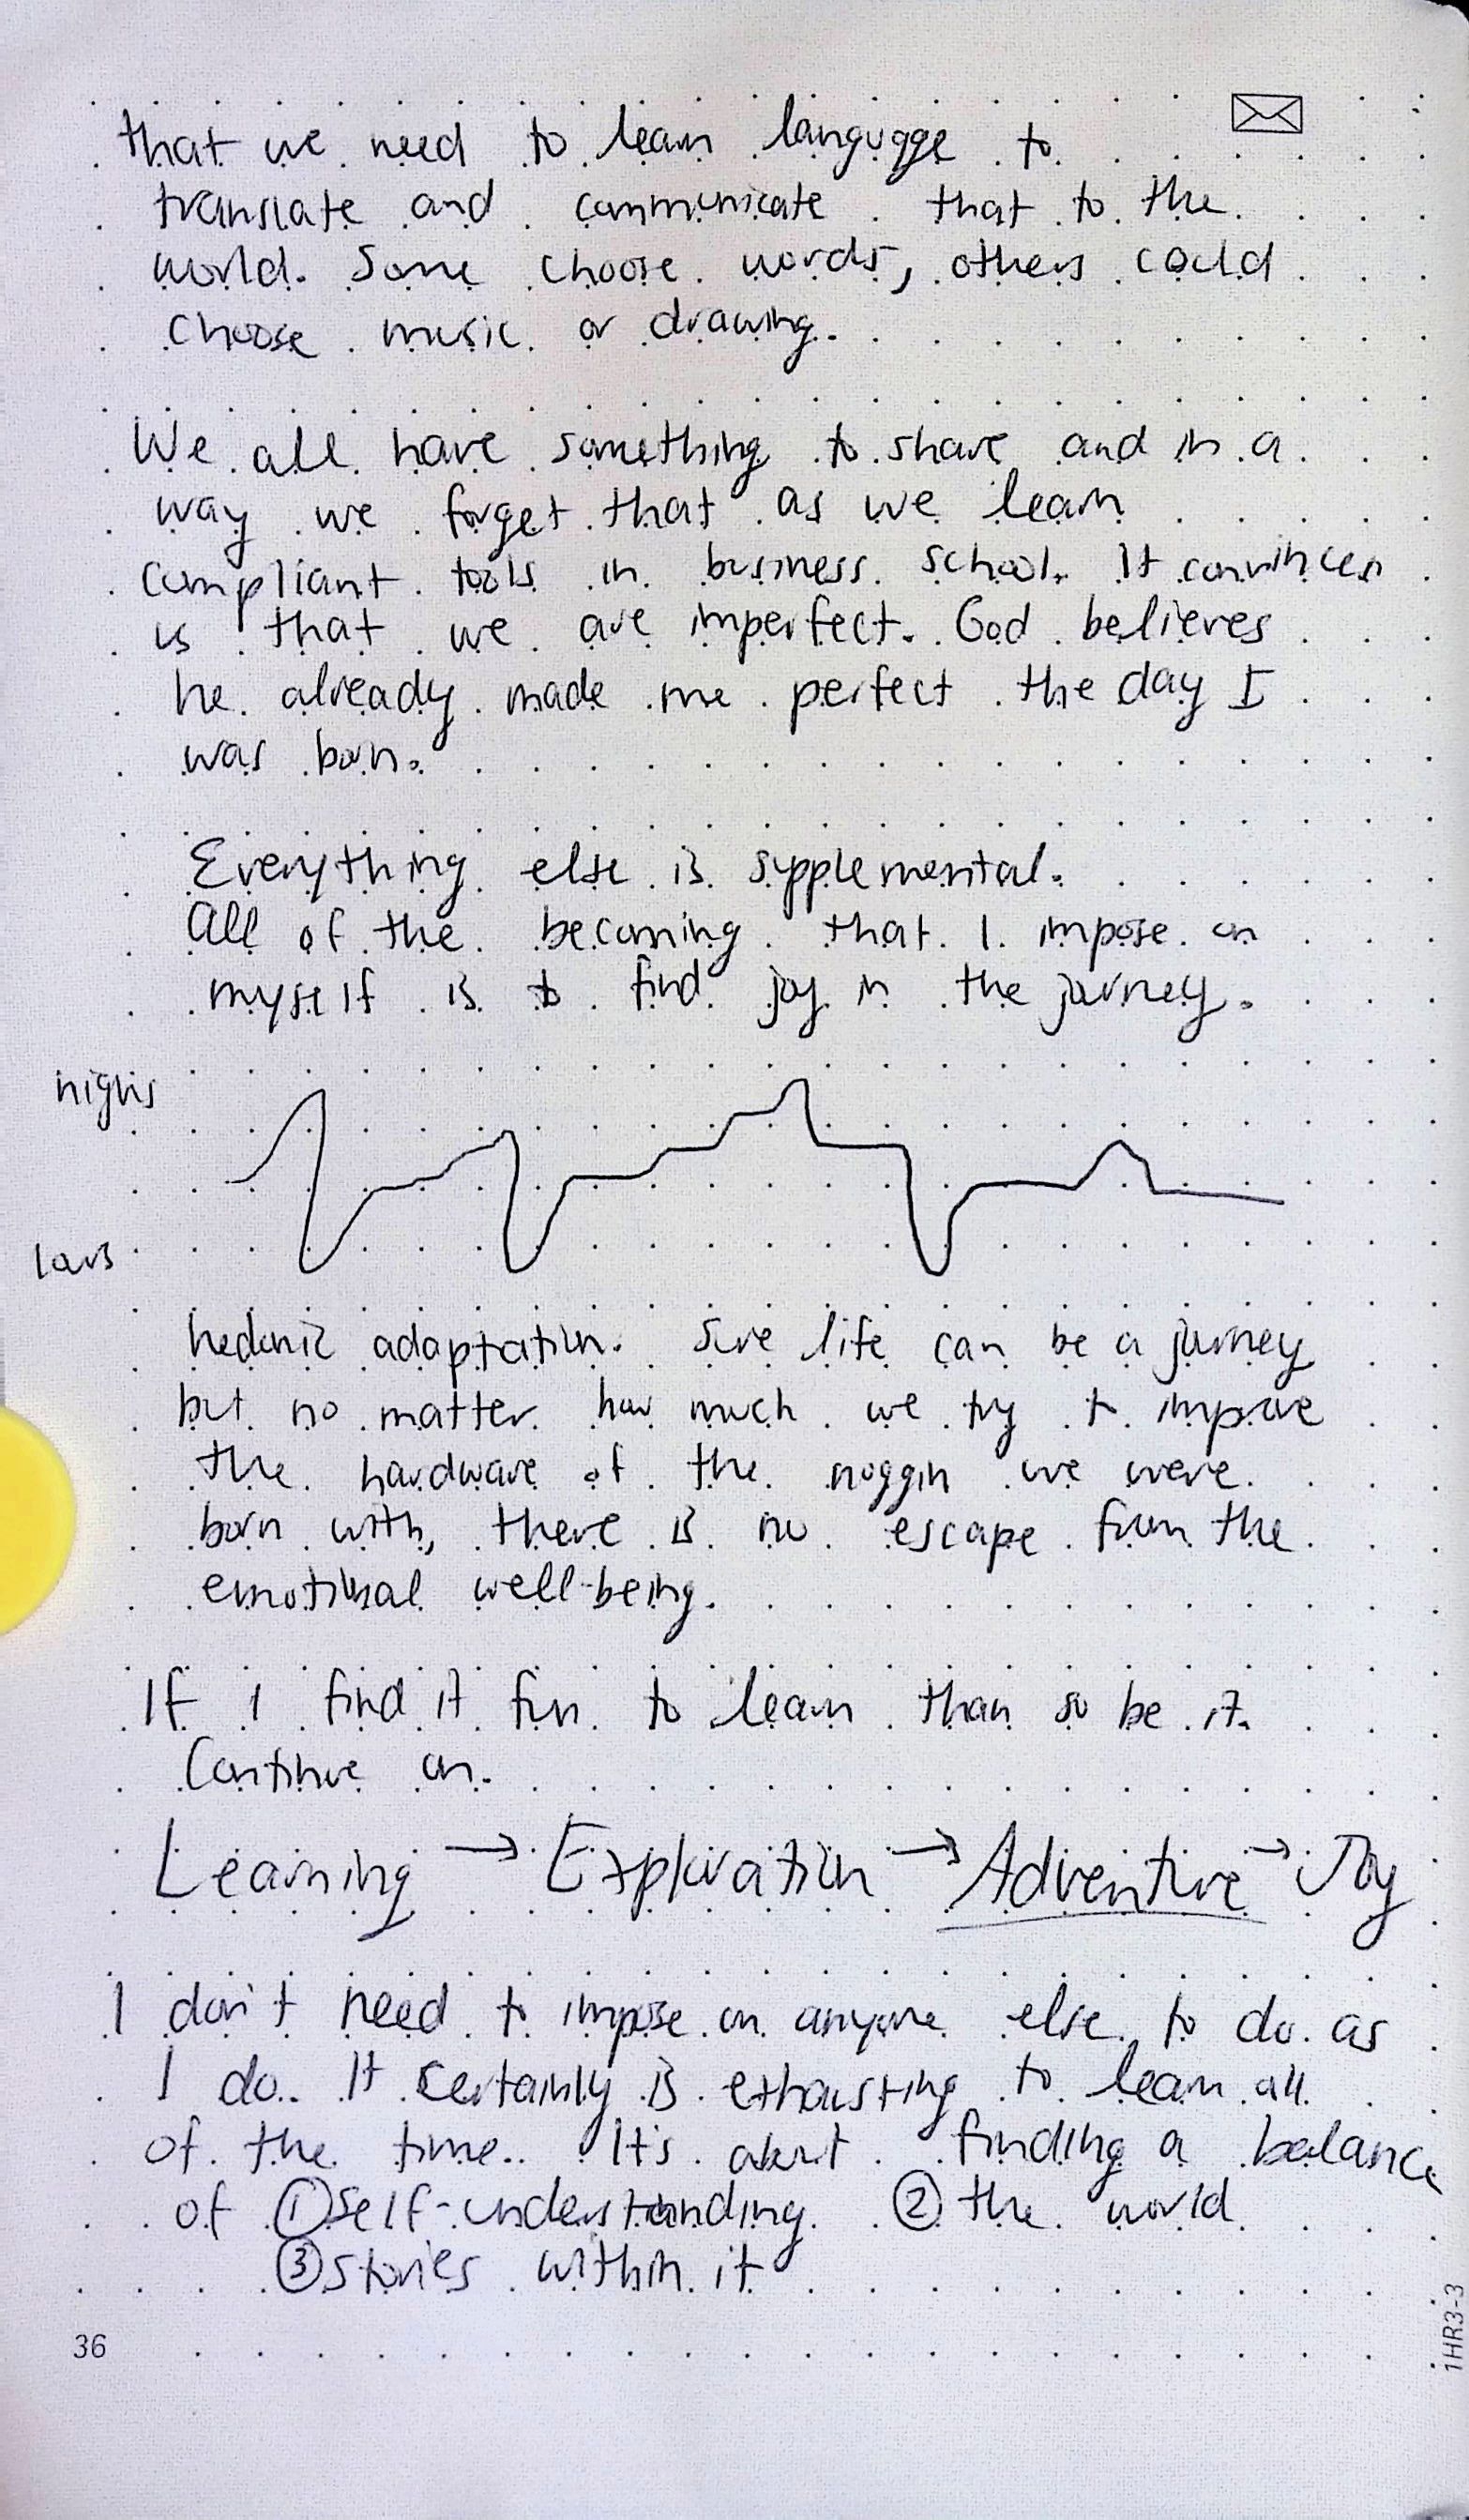 that we need to learn language to
translate and communicate that to the
world. Some choose words, others could
choose music or drawing.
We all have something to share and in a
way we forget that as we learn
compliant tools in business school. It convinces
us that we are imperfect. God believes
he already made me perfect the day I
was born.
Everything else is supplemental.
All of the becoming that I impose on
myself is to find joy in the journey.
highs
lows
hedonic adaptation. Sure life can be a journey
but no matter how much we try to improve
the hardware of the noggin we were
born with, there is no escape from the
emotional well-being.
If I find it fun to learn than so be it.
Continue on.
Learning → Exploration → Adventure → Joy
I don't need to impose on anyone else to do as
I do. It certainly is exhausting to learn all
of the time. It's about finding a balance
of ① self-understanding ② the world
③ stories within it
36
iHR3-3